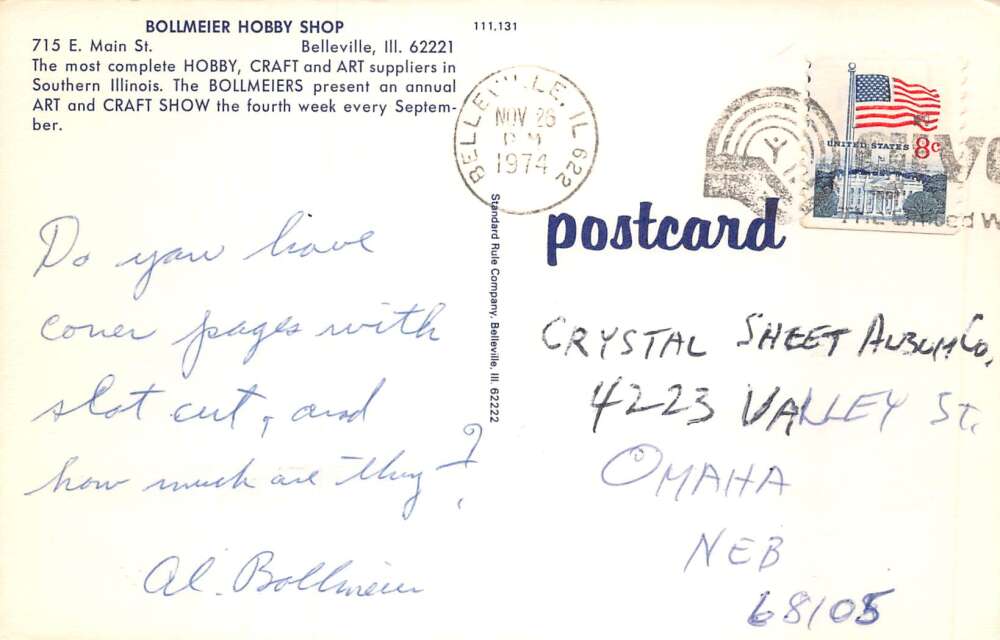 BOLLMEIER HOBBY SHOP
715 E. Main St. Belleville, Ill. 62221
The most complete HOBBY, CRAFT and ART suppliers in
Southern Illinois. The BOLLMEIERS present an annual
ART and CRAFT SHOW the fourth week every Septem-
ber.
111.131
BELLEVILLE, IL 622
NOV 26
PM
1974
UNITED STATES 8c
The United W
postcard
Standard Rule Company, Belleville, Ill. 62222
Do you have
cover pages with
slot cut, and
how much are they?
Al. Bollmeier
CRYSTAL SHEET ALBUM Co,
4223 VALLEY St.
OMAHA
NEB
68105